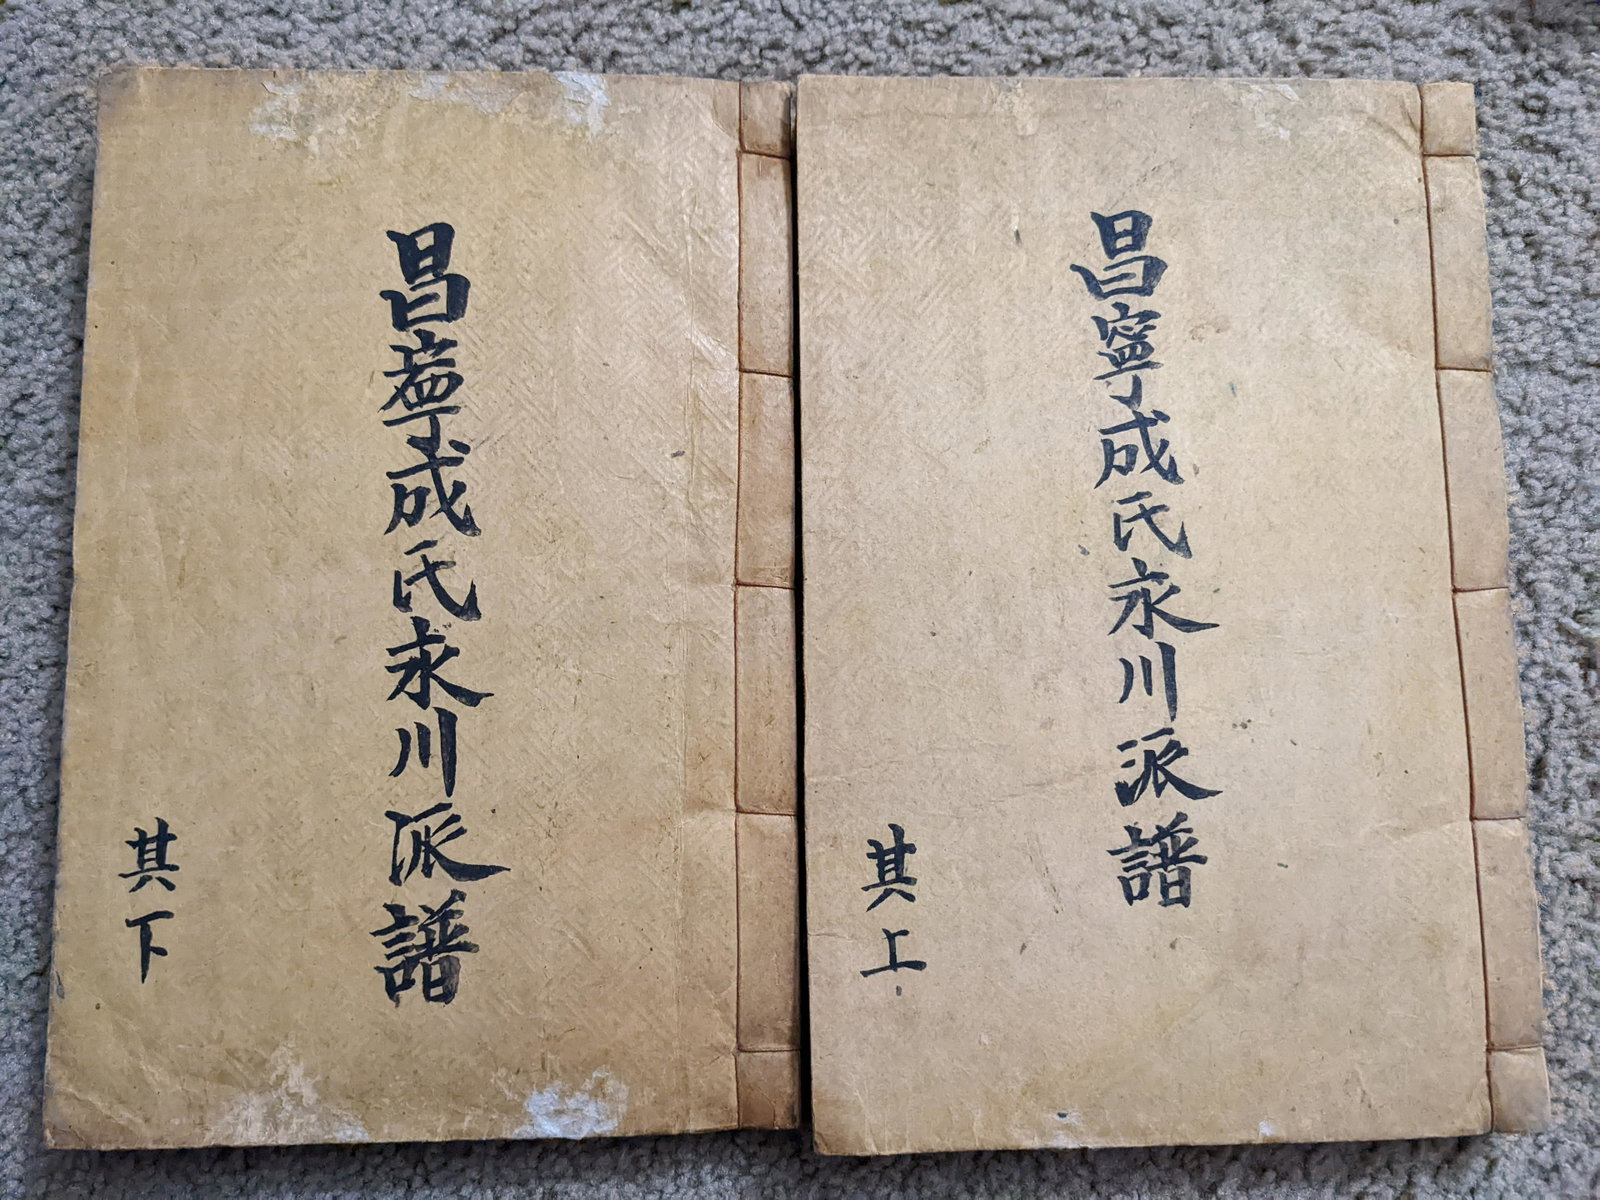 昌寧成氏永川派譜
其上
昌寧成氏永川派譜
其下